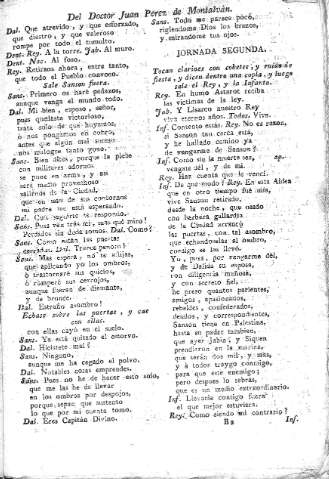 Del Doctor Juan Perez de Montalván.
Dal. Que atrevido, y que esforzado,
que diestro, y que valeroso
rompe por todo el tumulto.
Dent. Rey. A la torre. Jab. Al muro.
Dent. Nac. Al foso.
Rey. Retiraos ahora, entre tanto,
que todo el Pueblo convoco.
Sale Sanson fuera.
Sans. Primero os haré pedazos,
aunque venga el mundo todo.
Dal. Mi bien, esposo, señor,
pues quedaste victorioso,
trata solo de que huyamos,
ó nos pongamos en cobro,
antes que algun mal suceso
nos malogre tanto gozo.
Sans. Bien dices, porque la plebe
con militares adornos
se pone en arma, y así
será medio provechoso
salirnos de la Ciudad,
que en uno de sus contornos
mi padre me está esperando.
Dal. Con seguirte te respondo.
Sans. Pues ven tras mí, mas qué miro?
Cerradas son todas somos. Dal. Como?
Sans. Como están las puertas
cerradas. Dal. Trance penoso!
Sans. Mas espera, no te aflijas,
que aplicando yo los ombros,
ó trastornaré sus quicios,
ó rasparé sus cerrojos,
aunque fueran de diamante,
y de bronce.
Dal. Extraño asombro!
Echase sobre las puertas, y cae
con ellas.
con ellas cayó en el suelo.
Sans. Ya está quitado el estorvo.
Dal. Hicistete mal?
Sans. Ninguno,
aunque me ha cegado el polvo.
Dal. Notables cosas emprendes.
Sans. Pues no he de hacer esto solo,
que me las he de llevar
en los ombros por despojos,
porque sepan que sustento
lo que por mi cuenta tomo.
Dal. Eres Capitán Divino.
Sans. Todo me parece poco,
rigiendome Dios los brazos,
y mirandome tus ojos.
JORNADA SEGUNDA.
Tocan clarines con cohetes, y ruido de
fiesta, y dicen dentro una copla, y luego
sale el Rey, y la Infanta.
Rey. En humo Astarot reciba
las victimas de la ley.
Jab. Y Lisarco nuestro Rey
viva eternos años. Todos. Viva.
Inf. Contento estás. Rey. No es razon,
si Sanson tan cerca está,
y he hallado camino ya
de vengarme de Sanson?
Inf. Como su la muerte sea,
vengate del, y de mí.
Rey. Haz cuenta que le vencí.
Inf. De que modo? Rey. En esta Aldea
que en otro tiempo fue mia,
vive Sanson retirado,
desde la noche, que osado
con barbara gallardia
de la Ciudad arrancó
las puertas, con tal asombro,
que echandoselas al ombro,
consigo se las llevó.
Yo, pues, por vengarme dél,
y de Dalida su esposa,
con diligencia mañosa,
y con secreto fiel,
he preso quantos parientes,
amigos, apasionados,
rebeldes, confederados,
deudos, y correspondientes,
Sanson tiene en Palestina,
hasta su padre tambien,
que ayer Jabin, y Siquen
prendieron en la marina,
que serán dos mil, y mas,
y á todos traygo conmigo,
para que este enemigo;
pero despues lo sabrás,
que es un medio extraordinario.
Inf. Llevarla contigo fuera
el que mejor estuviera.
Rey. Como siendo mi contrario?
B2
Inf.